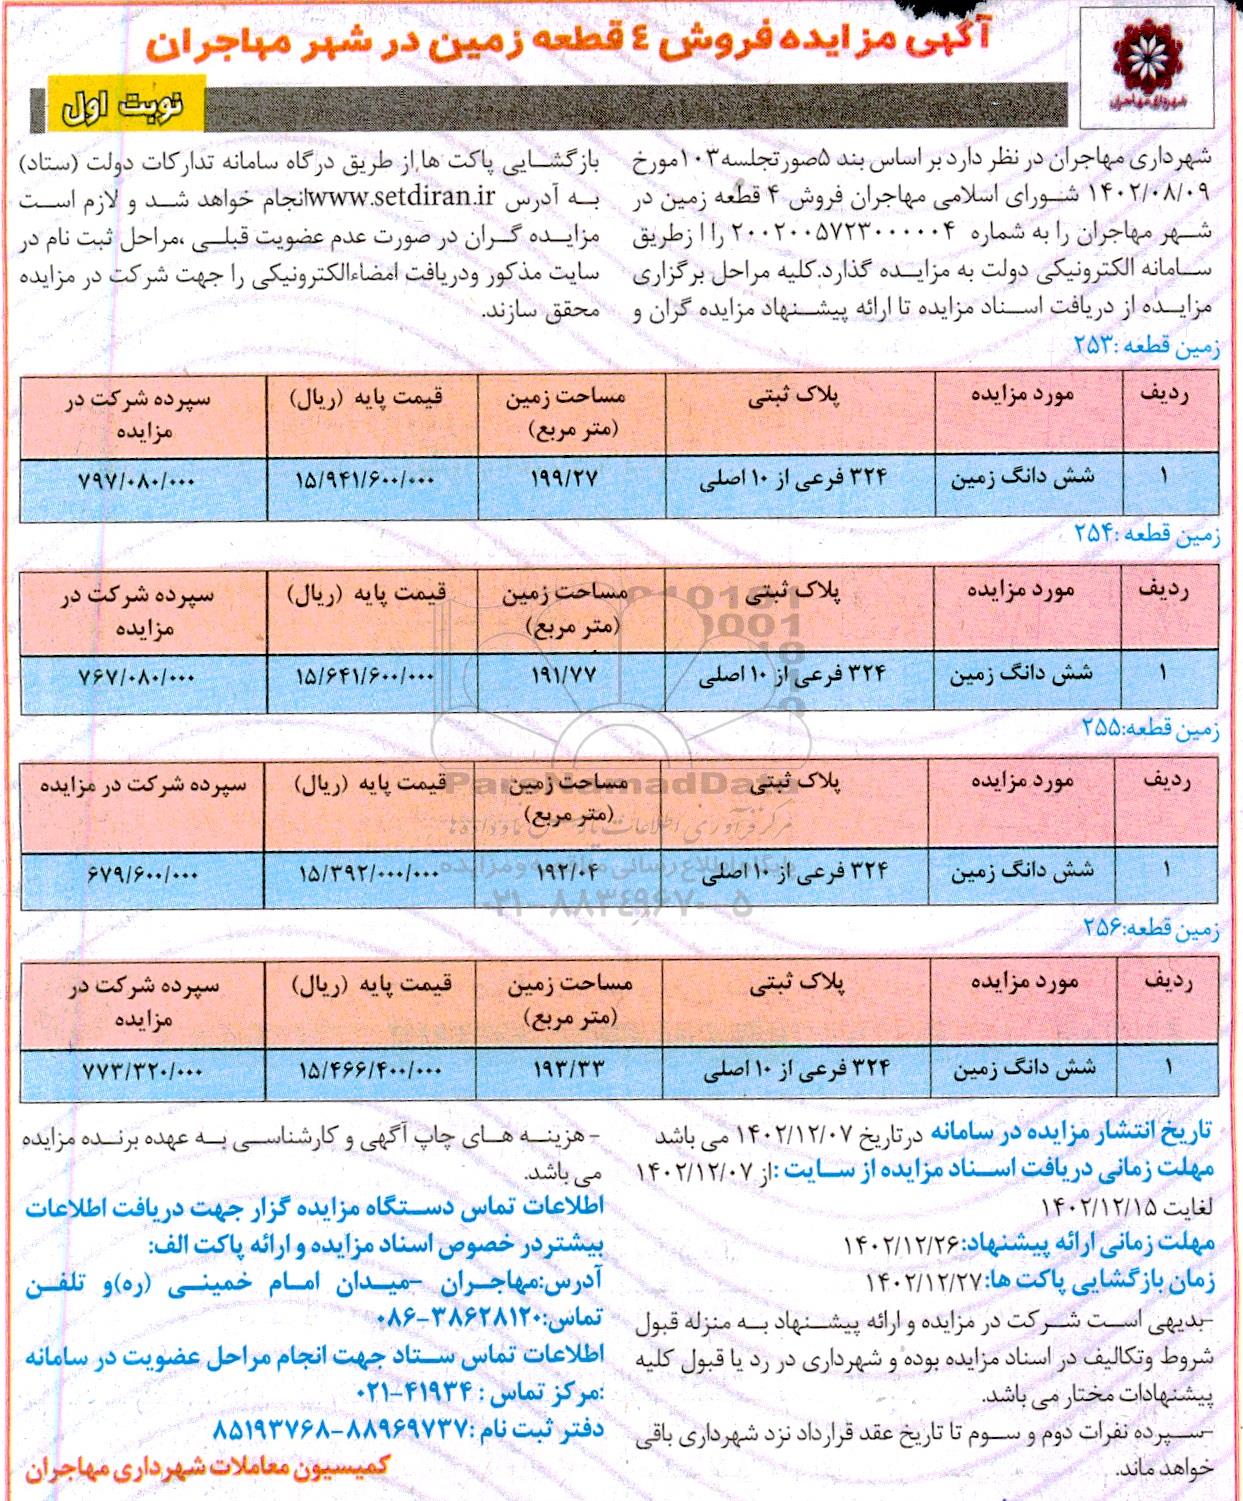 آگهی مزایده فروش ٤ قطعه زمین در شهر مهاجران
شهرداری مهاجران
نوبت اول
شهرداری مهاجران در نظر دارد بر اساس بند ۵صورتجلسه۱۰۳مورخ
۱۴۰۲/۰۸/۰۹ شورای اسلامی مهاجران فروش ۴ قطعه زمین در
شهر مهاجران را به شماره ۲۰۰۲۰۰۵۷۲۳۰۰۰۰۰۴ را ا زطریق
سامانه الکترونیکی دولت به مزایده گذارد.کلیه مراحل برگزاری
مزایده از دریافت اسناد مزایده تا ارائه پیشنهاد مزایده گران و
بازگشایی پاکت ها,از طریق درگاه سامانه تدارکات دولت (ستاد)
به آدرس www.setdiran.irانجام خواهد شد و لازم است
مزایده گران در صورت عدم عضویت قبلی ،مراحل ثبت نام در
سایت مذکور ودریافت امضاءالکترونیکی را جهت شرکت در مزایده
محقق سازند.
زمین قطعه :۲۵۳
ردیف مورد مزایده پلاک ثبتی مساحت زمین (متر مربع) قیمت پایه (ریال) سپرده شرکت در مزایده
۱ شش دانگ زمین ۳۲۴ فرعی از ۱۰ اصلی ۱۹۹/۲۷ ۱۵/۹۴۱/۶۰۰/۰۰۰ ۷۹۷/۰۸۰/۰۰۰
زمین قطعه :۲۵۴
ردیف مورد مزایده پلاک ثبتی مساحت زمین (متر مربع) قیمت پایه (ریال) سپرده شرکت در مزایده
۱ شش دانگ زمین ۳۲۴ فرعی از ۱۰ اصلی ۱۹۱/۷۷ ۱۵/۶۴۱/۶۰۰/۰۰۰ ۷۶۷/۰۸۰/۰۰۰
زمین قطعه:۲۵۵
ردیف مورد مزایده پلاک ثبتی مساحت زمین (متر مربع) قیمت پایه (ریال) سپرده شرکت در مزایده
۱ شش دانگ زمین ۳۲۴ فرعی از ۱۰ اصلی ۱۹۲/۰۴ ۱۵/۳۹۲/۰۰۰/۰۰۰ ۶۷۹/۶۰۰/۰۰۰
ParsNamadData
پایگاه اطلاع رسانی مناقصه و مزایده
۰۲۱-۸۸۳۴۹۶۷۰-۵
زمین قطعه:۲۵۶
ردیف مورد مزایده پلاک ثبتی مساحت زمین (متر مربع) قیمت پایه (ریال) سپرده شرکت در مزایده
۱ شش دانگ زمین ۳۲۴ فرعی از ۱۰ اصلی ۱۹۳/۳۳ ۱۵/۴۶۶/۴۰۰/۰۰۰ ۷۷۳/۳۲۰/۰۰۰
تاریخ انتشار مزایده در سامانه درتاریخ ۱۴۰۲/۱۲/۰۷ می باشد
مهلت زمانی دریافت اسناد مزایده از سایت :از ۱۴۰۲/۱۲/۰۷
لغایت ۱۴۰۲/۱۲/۱۵
مهلت زمانی ارائه پیشنهاد:۱۴۰۲/۱۲/۲۶
زمان بازگشایی پاکت ها:۱۴۰۲/۱۲/۲۷
-بدیهی است شرکت در مزایده و ارائه پیشنهاد به منزله قبول
شروط وتکالیف در اسناد مزایده بوده و شهرداری در رد یا قبول کلیه
پیشنهادات مختار می باشد.
-سپرده نفرات دوم و سوم تا تاریخ عقد قرارداد نزد شهرداری باقی
خواهد ماند.
- هزینه های چاپ آگهی و کارشناسی به عهده برنده مزایده
می باشد.
اطلاعات تماس دستگاه مزایده گزار جهت دریافت اطلاعات
بیشتردر خصوص اسناد مزایده و ارائه پاکت الف:
آدرس:مهاجران -میدان امام خمینی (ره)و تلفن
تماس:۳۸۶۲۸۱۲۰-۰۸۶
اطلاعات تماس ستاد جهت انجام مراحل عضویت در سامانه
:مرکز تماس : ۴۱۹۳۴-۰۲۱
دفتر ثبت نام :۸۸۹۶۹۷۳۷-۸۵۱۹۳۷۶۸
کمیسیون معاملات شهرداری مهاجران